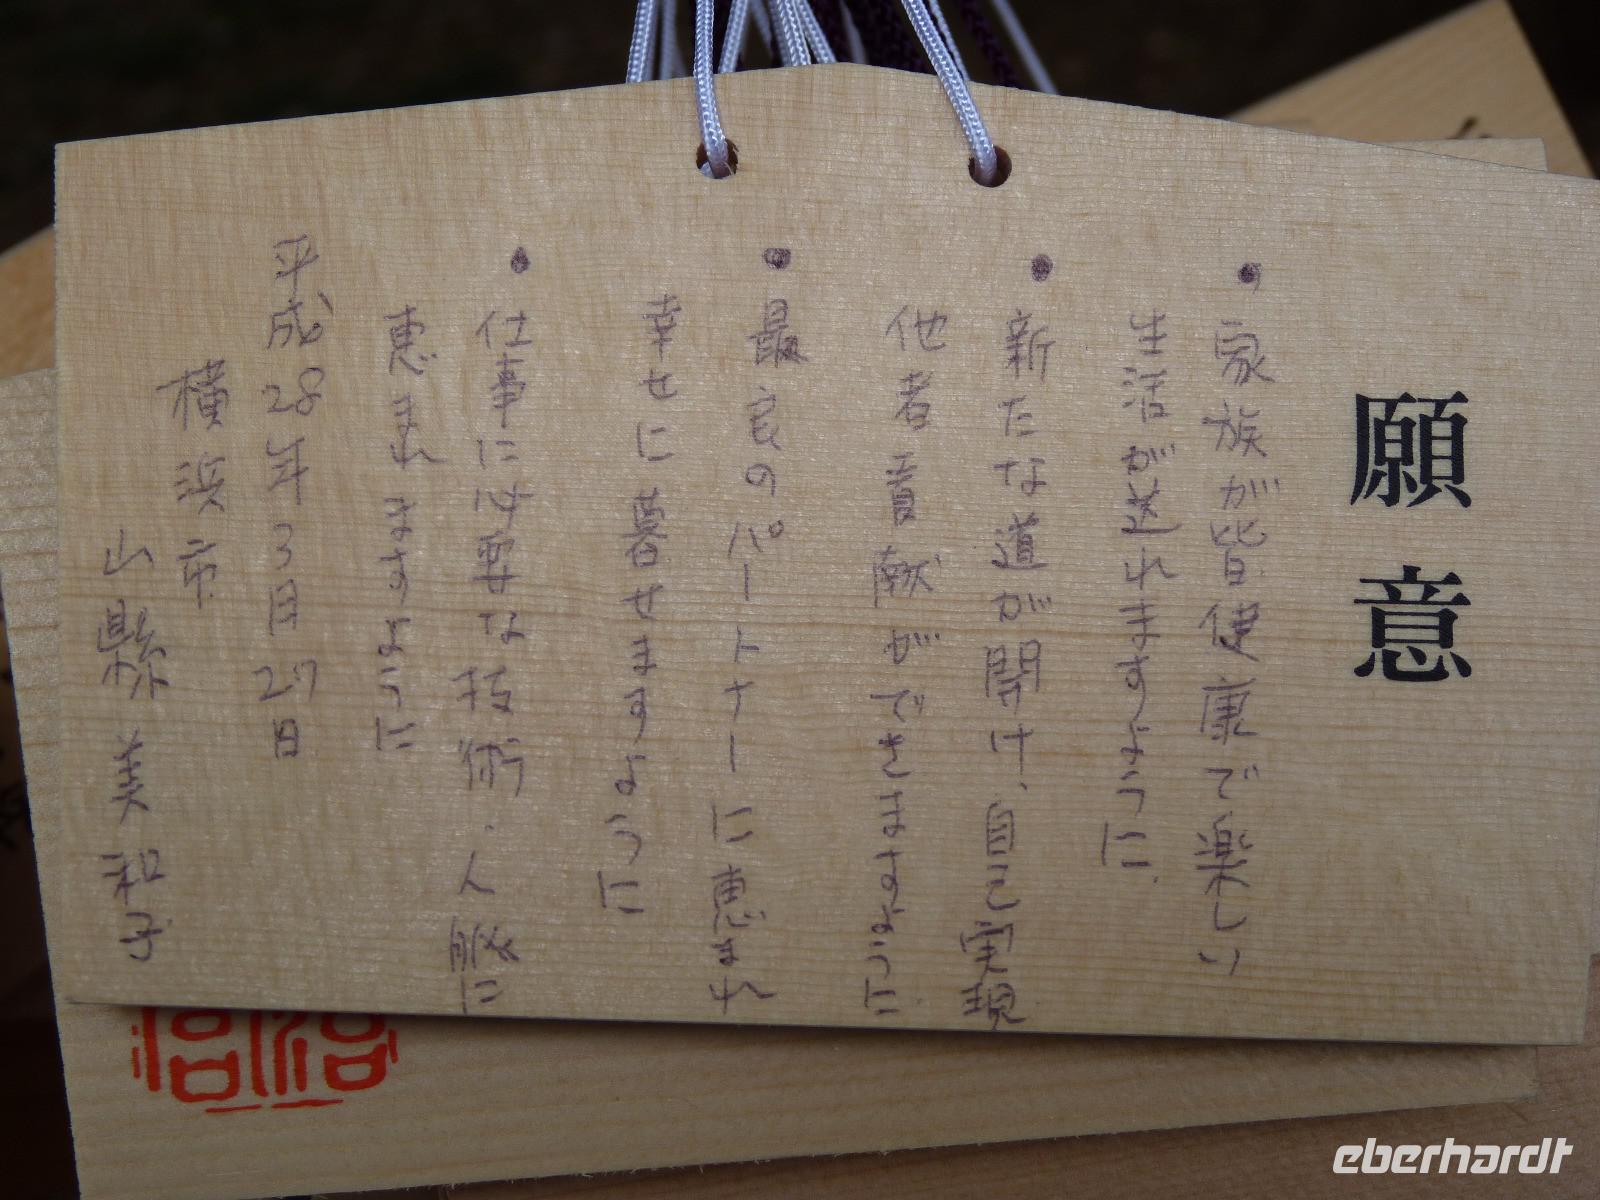 願意
・家族が皆健康で楽しい
生活が送れますように
・新たな道が開け、自己実現
他者貢献ができますように
・最良のパートナーに恵まれ
幸せに暮せますように
・仕事に必要な技術・人繋に
恵まれますように
平成28年3月27日
横浜市
山縣美和子
eberhardt